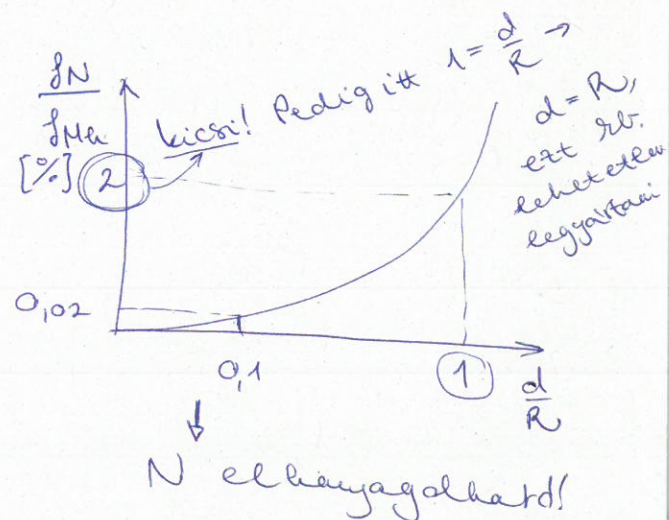 fN
fMh
[%]
kicsi! Pedig itt 1 = d/R →
d = R,
ezt kb.
lehetetlen
legyártani
2
0,02
0,1
1
d/R
↓
N elhanyagolható!